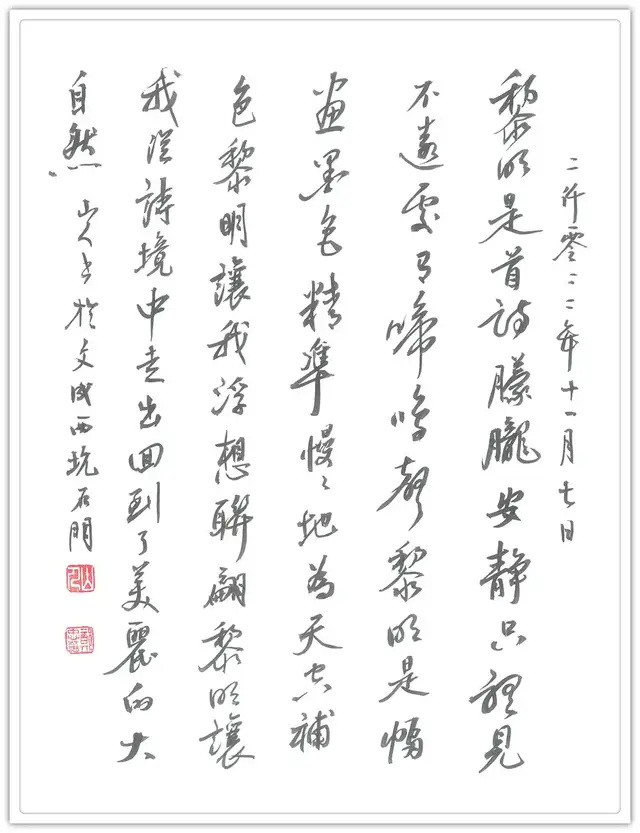 二〇零二二年十一月七日
黎明是首诗朦朧安靜只聽見
不遠處有啼鳴聲黎明是幅
画墨色精準慢〻地為天空補
色黎明讓我浮想聯翩黎明讓
我從詩境中走出回到了美麗的大
自然 山人書於文成西坑石門